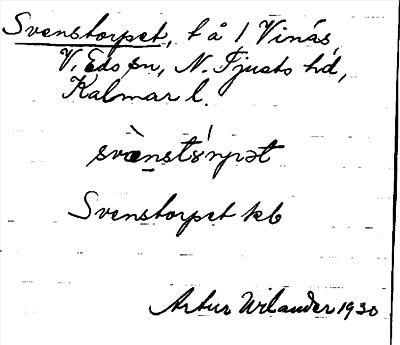 Svenstorpet, t å 1 Vinäs,
V. Eds sn, N. Tjusts hd,
Kalmar l.
Svenstorpet kb
Artur Wilander 1930